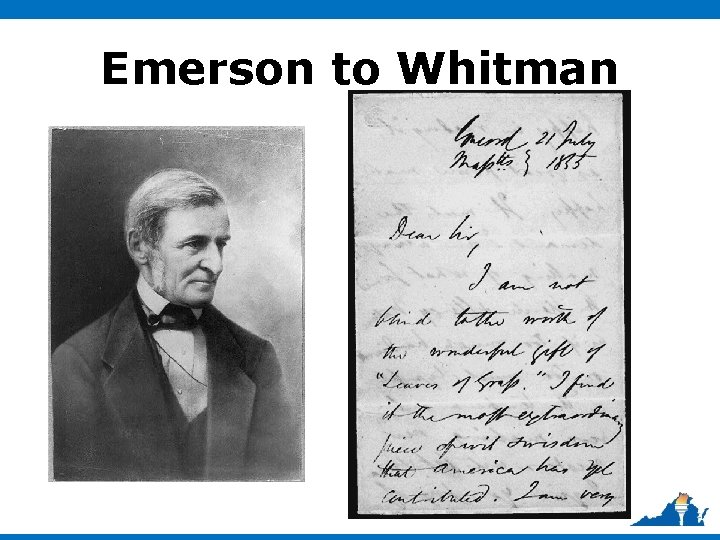 Emerson to Whitman
Concord 21 July
Massts } 1855
Dear Sir,
I am not
blind to the worth of
the wonderful gift of
"Leaves of Grass." I find
it the most extraordinary
piece of wit & wisdom
that America has yet
contributed. I am very